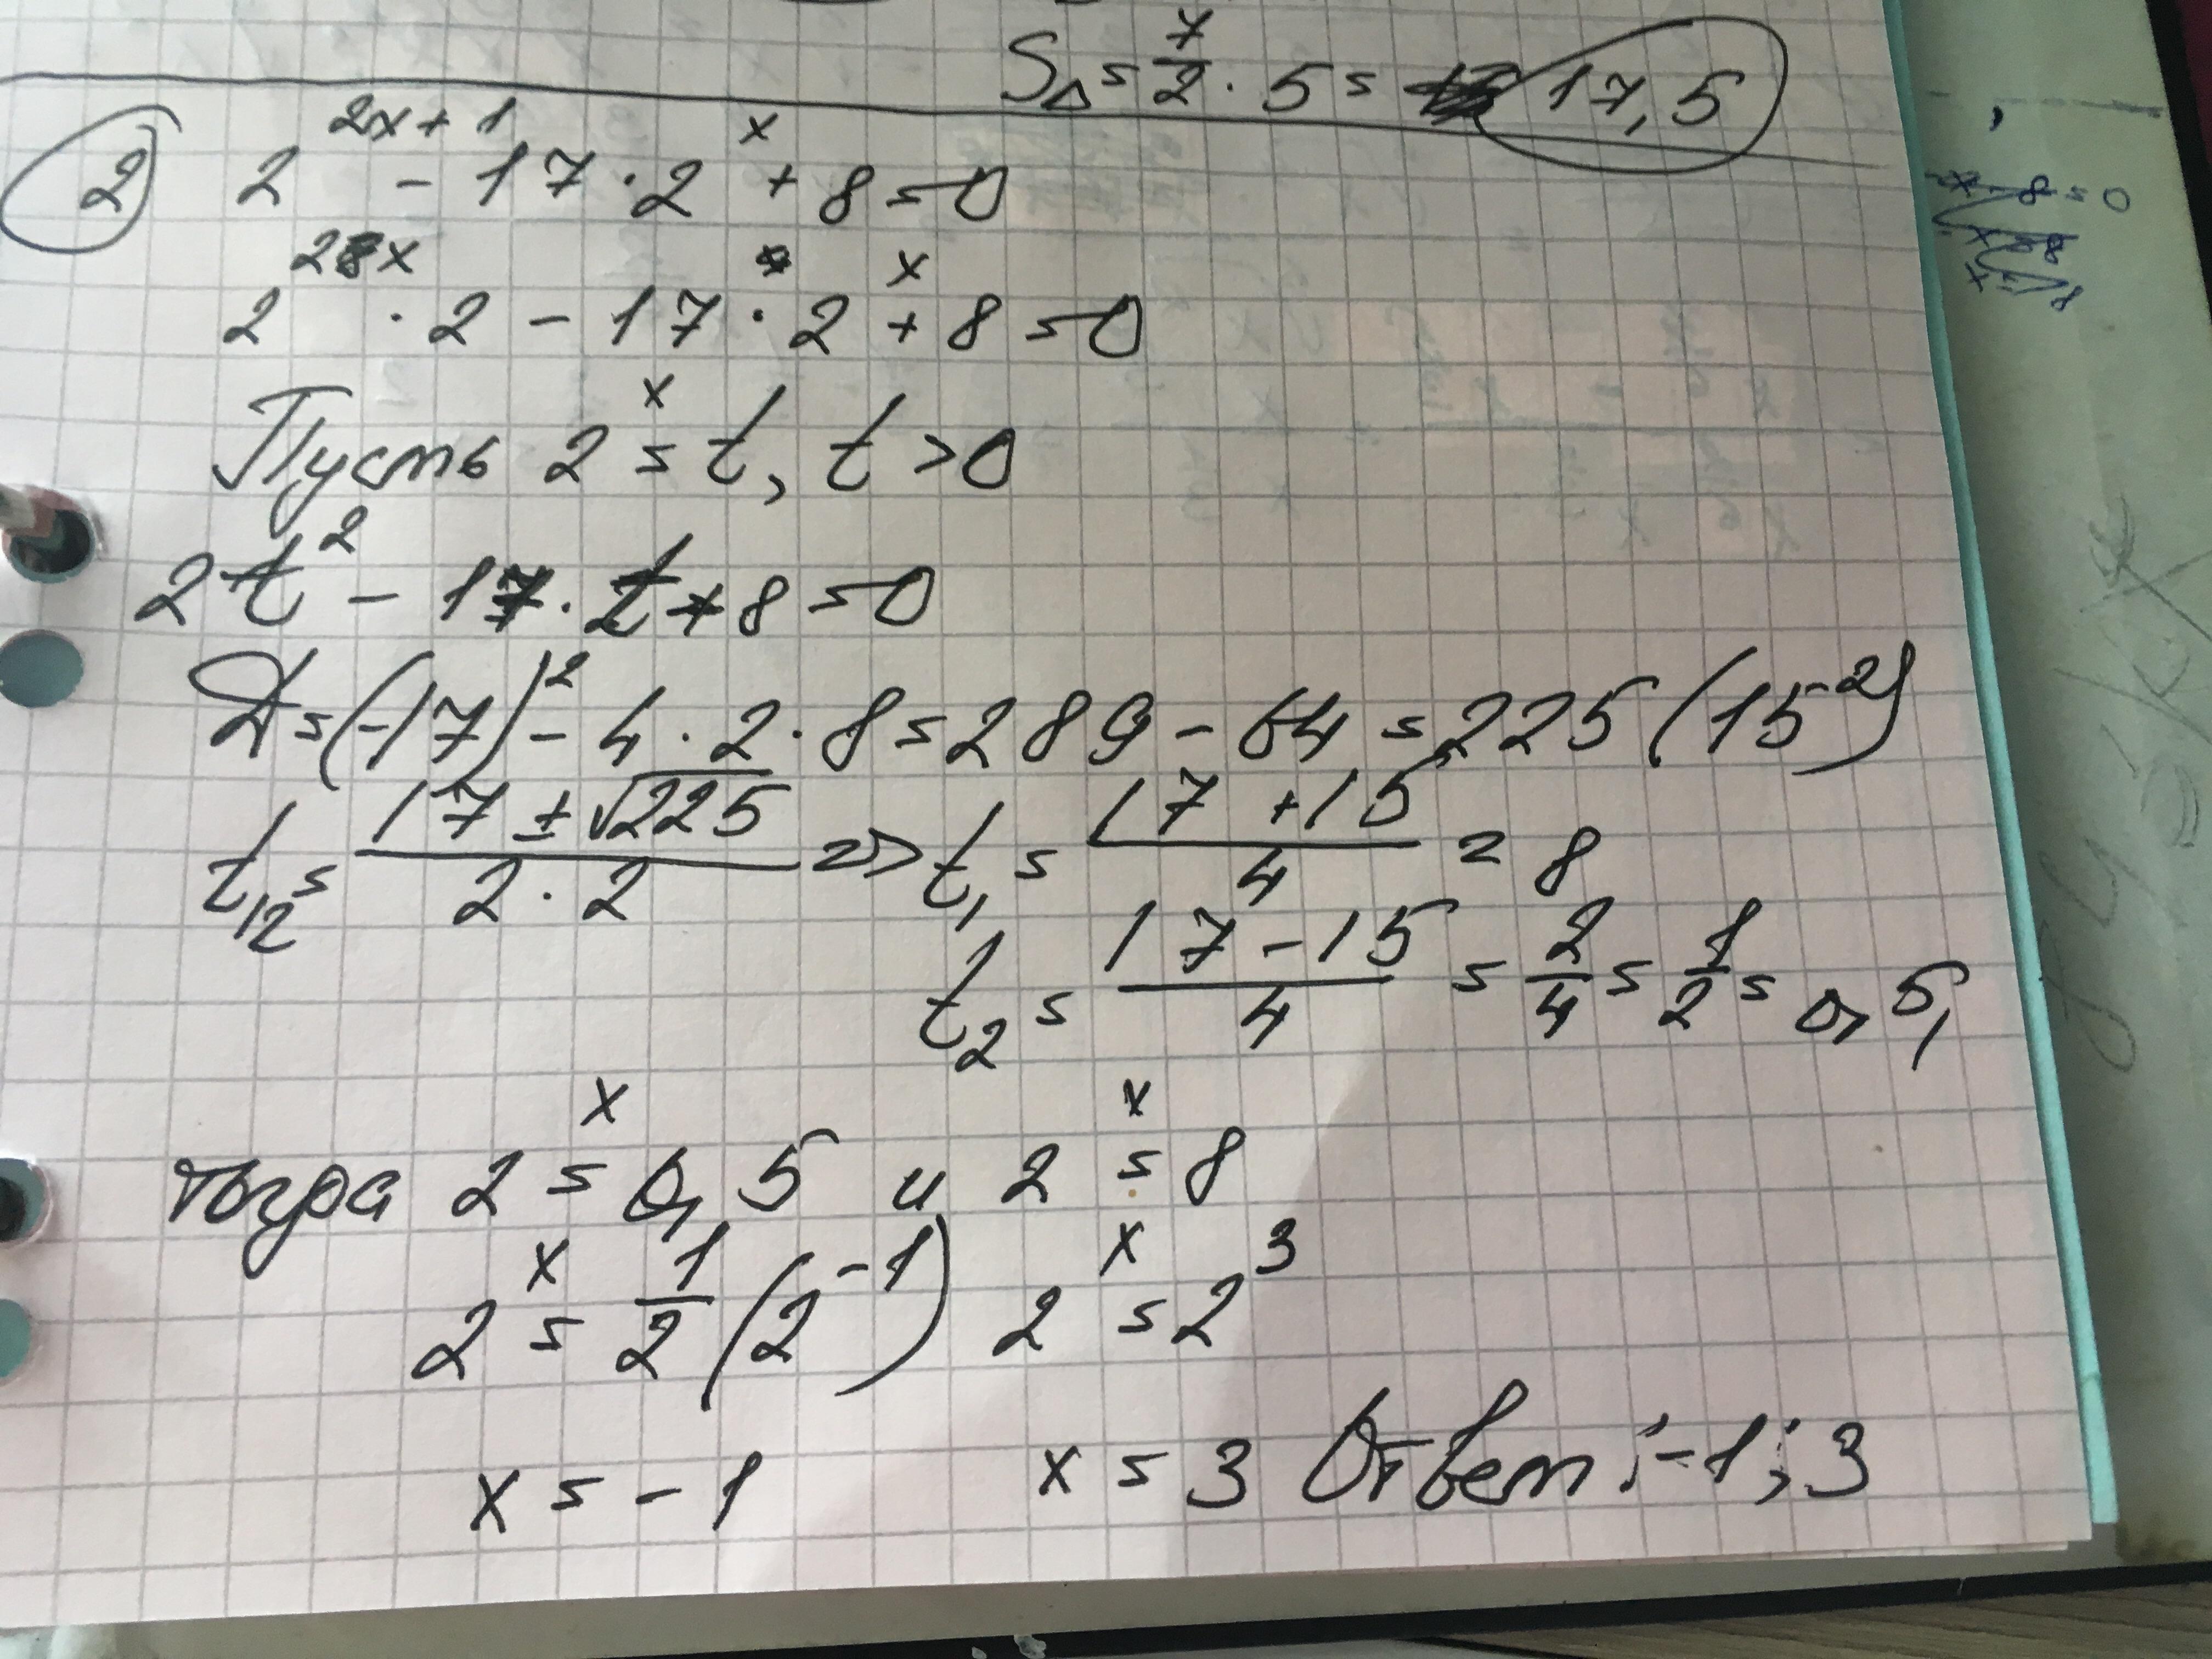 S△ = 7/2 · 5 = 17,5
2 2^(2x+1) - 17 · 2^x + 8 = 0
2^(2x) · 2 - 17 · 2^x + 8 = 0
Пусть 2^x = t, t > 0
2t² - 17 · t + 8 = 0
D = (-17)² - 4 · 2 · 8 = 289 - 64 = 225 (15²)
t₁₂ = (17 ± √225)/(2 · 2) => t₁ = (17 + 15)/4 = 8
t₂ = (17 - 15)/4 = 2/4 = 1/2 = 0,5,
тогда 2^x = 0,5 и 2^x = 8
2^x = 1/2 (2^-1) 2^x = 2^3
x = -1 x = 3 Ответ: -1; 3